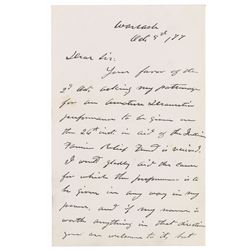 Oct 8th, '77
Dear Sir:
Your favor of the
2d Oct. asking my patronage
for an Amateur Dramatic
performance to be given on
the 26th inst in aid of the Indian
Famine Relief Fund is received.
I will gladly aid the cause
for which the performance is to
be given in any way in my
power, and if my name is
worth anything in that direction
you are welcome to it, but